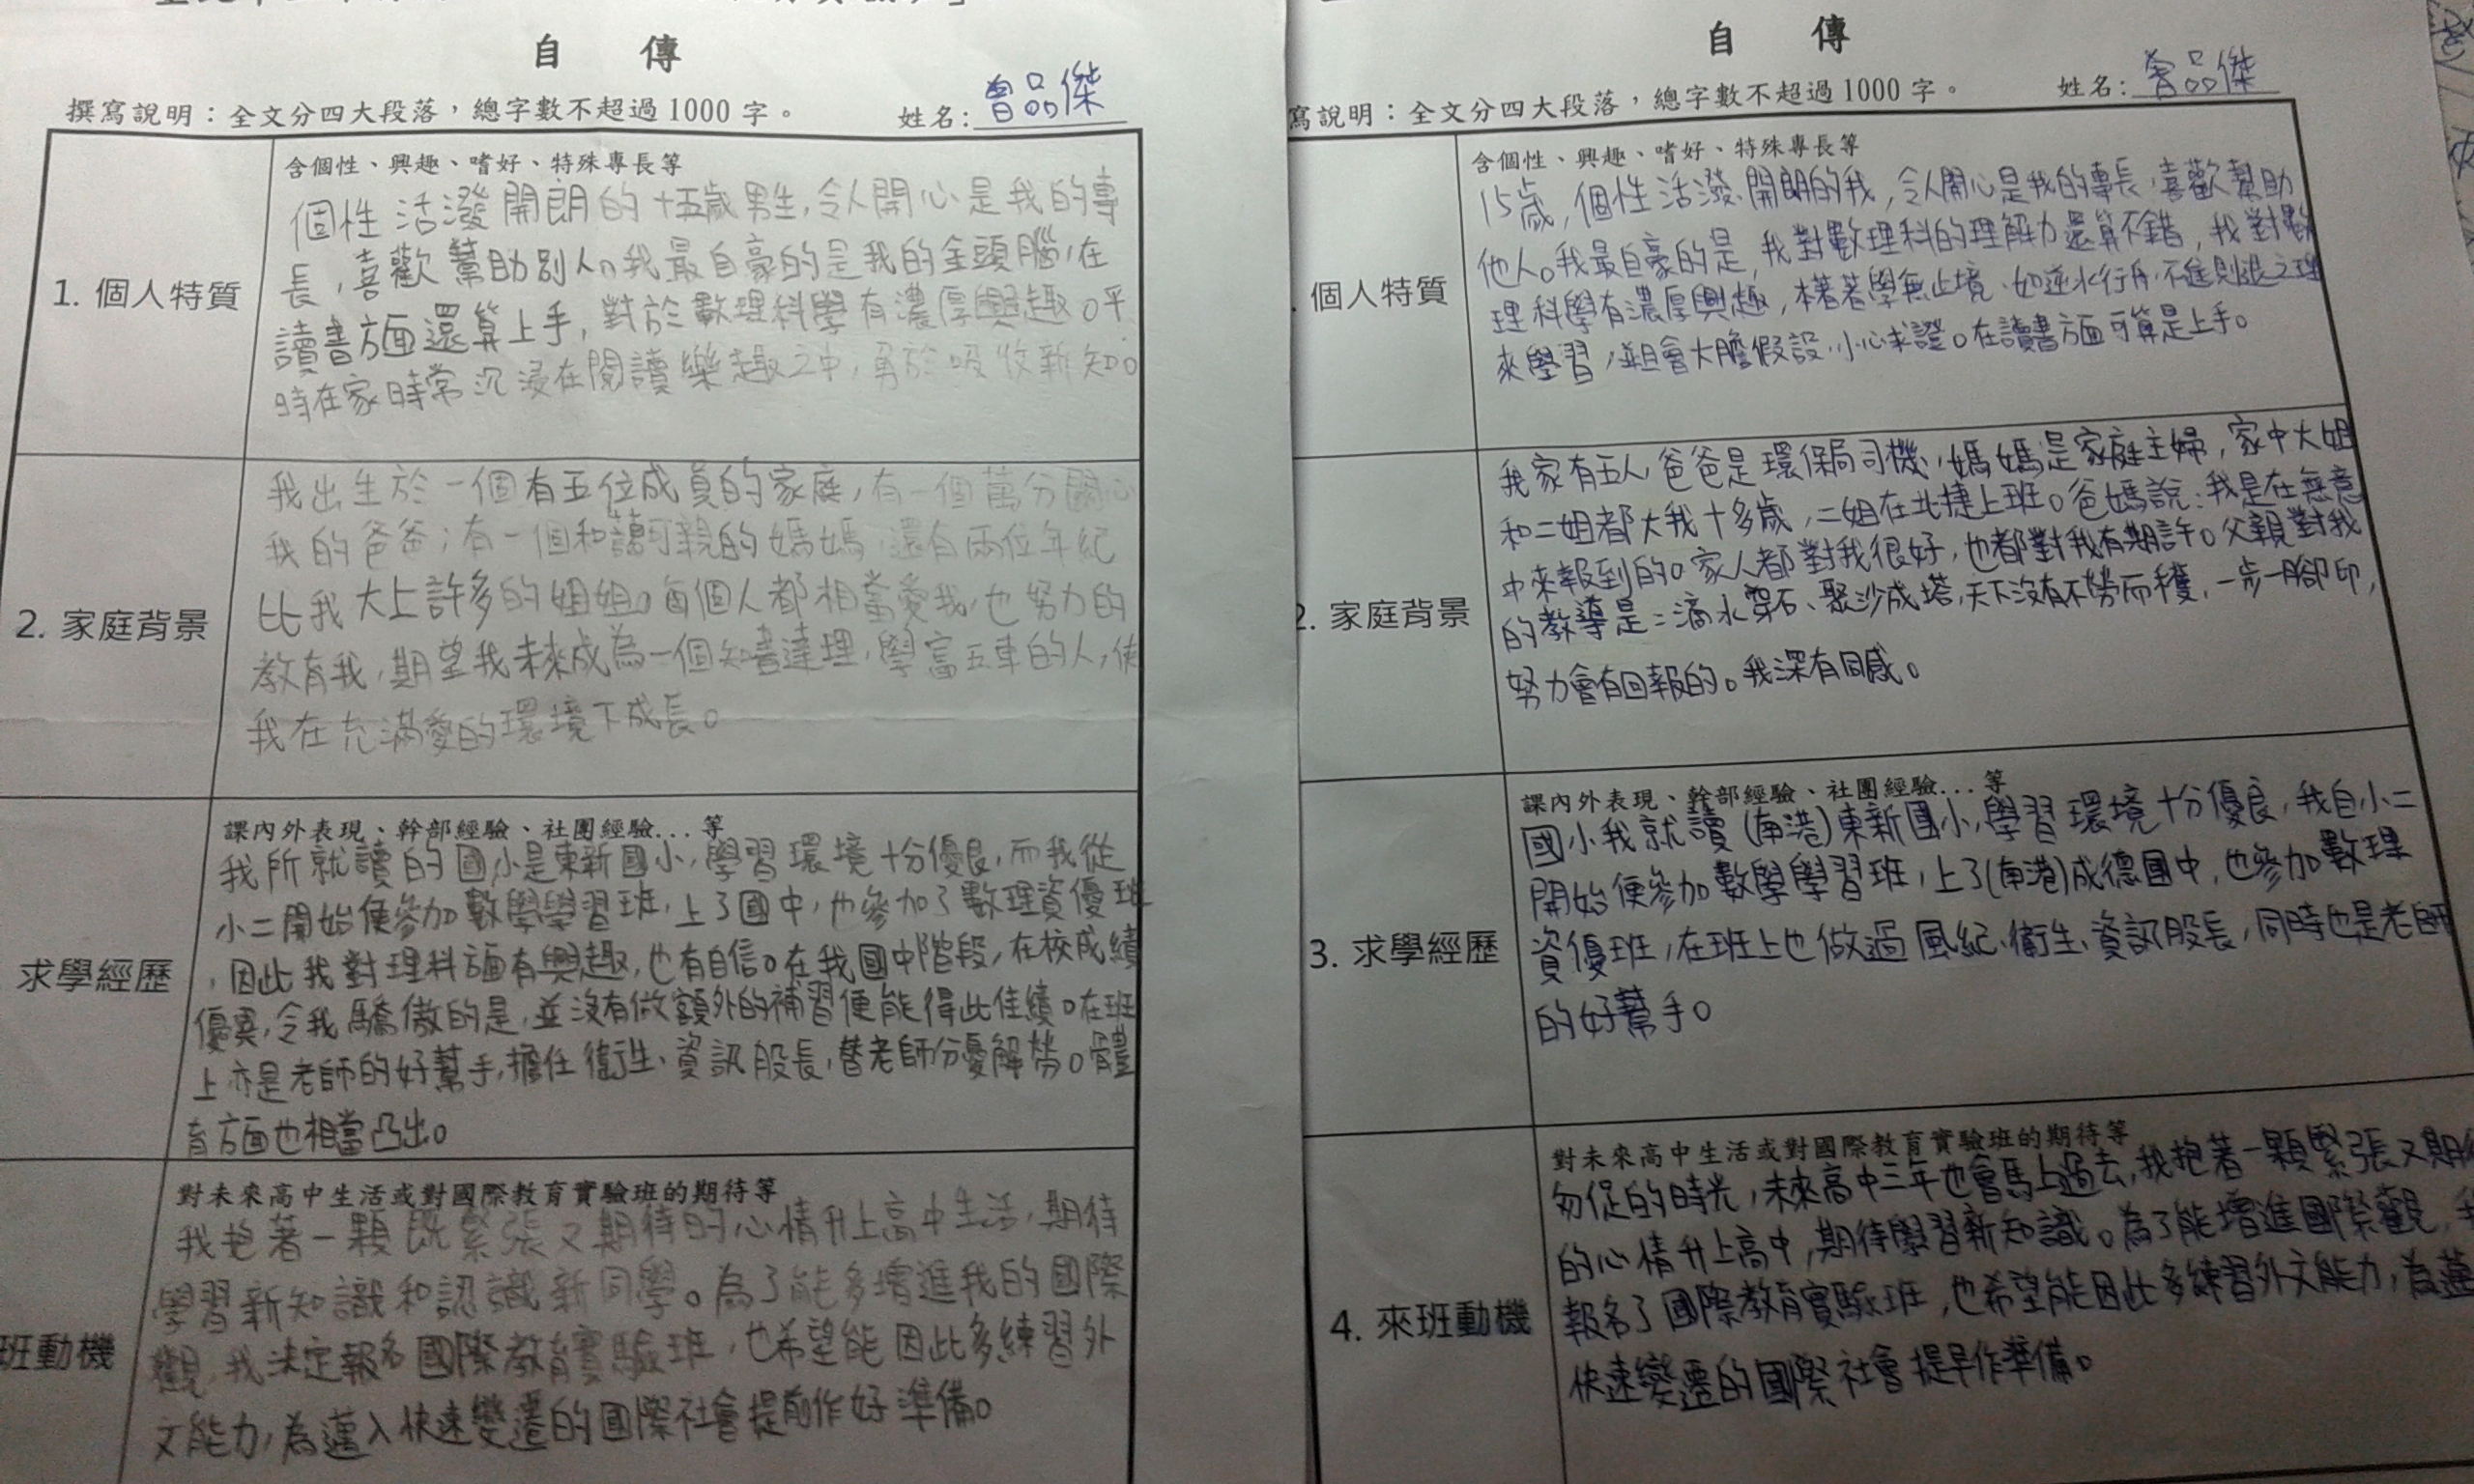 自 傳
撰寫說明：全文分四大段落，總字數不超過1000字。 姓名：曾品傑
1. 個人特質
含個性、興趣、嗜好、特殊專長等
個性活潑開朗的十五歲男生，令人開心是我的專
長，喜歡幫助別人。我最自豪的是我的金頭腦，在
讀書方面還算上手，對於數理科學有濃厚興趣。平
時在家時常沉浸在閱讀樂趣之中，勇於吸收新知。
2. 家庭背景
我出生於一個有五位成員的家庭，有一個萬分關心
我的爸爸；有一個和藹可親的媽媽，還有兩位年紀
比我大上許多的姐姐。每個人都相當愛我，也努力的
教育我，期望我未來成為一個知書達理，學富五車的人，使
我在充滿愛的環境下成長。
求學經歷
課內外表現、幹部經驗、社團經驗…等
我所就讀的國小是東新國小，學習環境十分優良，而我從
小二開始便參加數學學習班，上了國中，也參加了數理資優班
，因此我對理科方面有興趣，也有自信。在我國中階段，在校成績
優異，令我驕傲的是，並沒有做額外的補習便能得此佳績。在班
上亦是老師的好幫手，擔任衛生、資訊股長，替老師分憂解勞。體
育方面也相當凸出。
班動機
對未來高中生活或對國際教育實驗班的期待等
我抱著一顆既緊張又期待的心情升上高中生活，期待
學習新知識和認識新同學。為了能多增進我的國際
觀，我決定報名國際教育實驗班，也希望能因此多練習外
文能力，為邁入快速變遷的國際社會提前作好準備。
自 傳
寫說明：全文分四大段落，總字數不超過1000字。 姓名：曾品傑
個人特質
含個性、興趣、嗜好、特殊專長等
15歲，個性活潑、開朗的我，令人開心是我的專長，喜歡幫助
他人。我最自豪的是，我對數理科的理解力還算不錯，我對數
理科學有濃厚興趣，本著著學無止境、如逆水行舟，不進則退之理
來學習，並且會大膽假設、小心求證。在讀書方面可算是上手。
2. 家庭背景
我家有五人，爸爸是環保局司機，媽媽是家庭主婦，家中大姐
和二姐都大我十多歲，二姐在北捷上班。爸媽說：我是在無意
中來報到的。家人都對我很好，也都對我有期許。父親對我
的教導是：滴水穿石、聚沙成塔，天下沒有不勞而穫，一步一腳印，
努力會有回報的。我深有同感。
3. 求學經歷
課內外表現、幹部經驗、社團經驗…等
國小我就讀(南港)東新國小，學習環境十分優良，我自小二
開始便參加數學學習班，上了(南港)成德國中，也參加數理
資優班，在班上也做過風紀、衛生、資訊股長，同時也是老師
的好幫手。
4. 來班動機
對未來高中生活或對國際教育實驗班的期待等
匆促的時光，未來高中三年也會馬上過去，我抱著一顆緊張又期待
的心情升上高中，期待學習新知識。為了能增進國際觀，我
報名了國際教育實驗班，也希望能因此多練習外文能力，為邁
快速變遷的國際社會提早作準備。